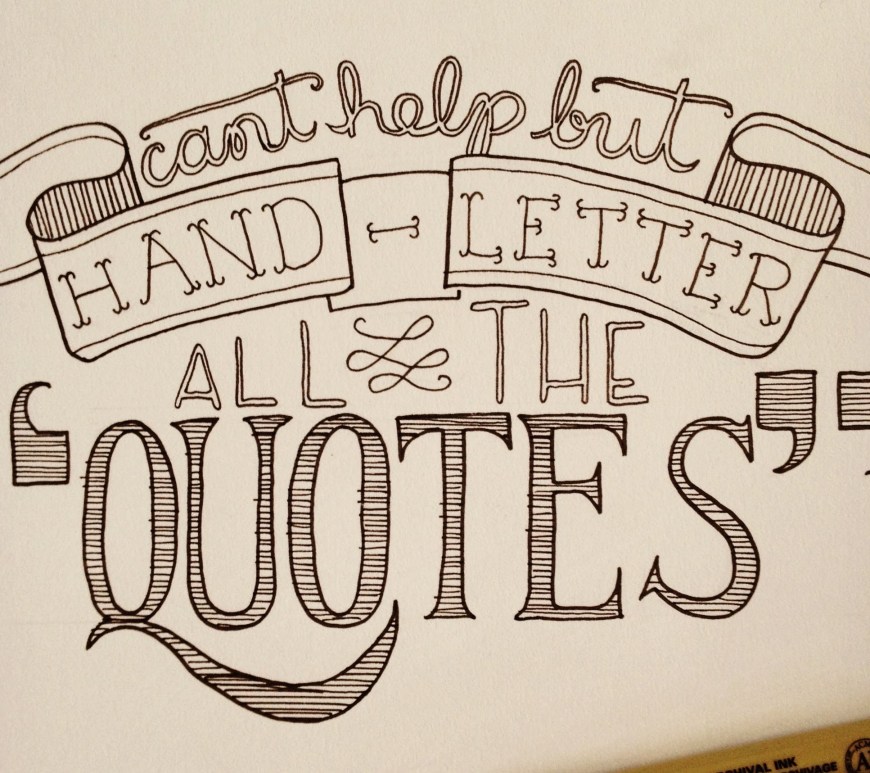 cant help but
HAND-LETTER
ALL THE
‘QUOTES’
CHIVAL INK